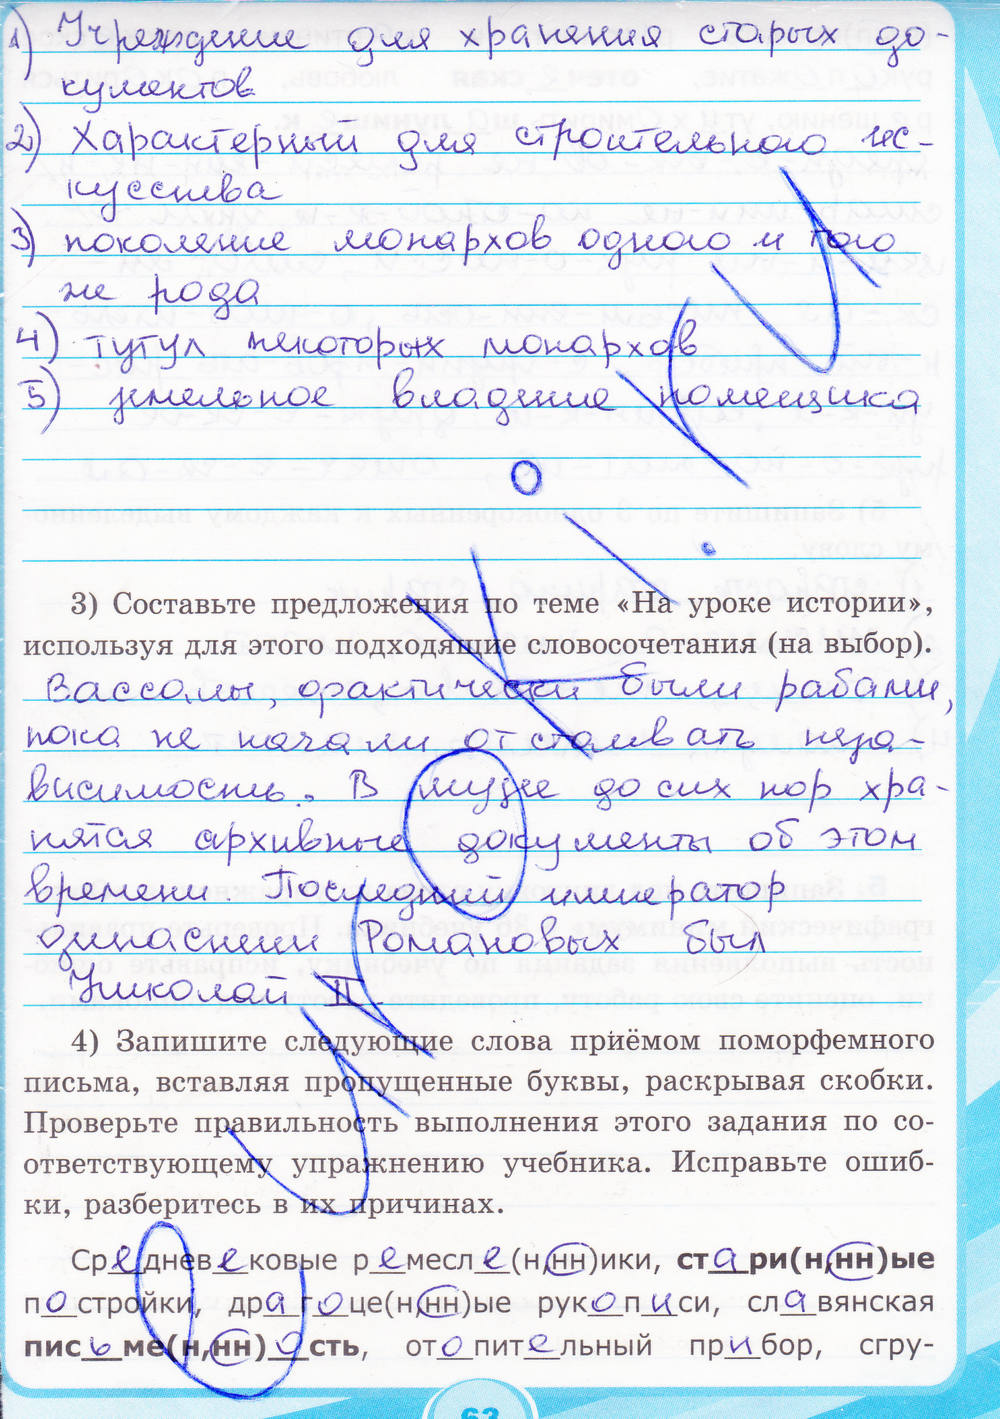 1) Учреждение для хранения старых до-
кументов
2) Характерный для строительного ис-
кусства
3) поколение монархов одного и того
же рода
4) тутул некоторых монархов
5) земельное владение помещика
3) Составьте предложения по теме «На уроке истории»,
используя для этого подходящие словосочетания (на выбор).
Вассалы, фактически были рабами,
пока не начали отстаивать неза-
висимость. В музее до сих пор хра-
нятся архивные документы об этом
времени. Последний император
династии Романовых был
Николай II.
4) Запишите следующие слова приёмом поморфемного
письма, вставляя пропущенные буквы, раскрывая скобки.
Проверьте правильность выполнения этого задания по со-
ответствующему упражнению учебника. Исправьте ошиб-
ки, разберитесь в их причинах.
Средневековые ремесле(н,нн)ики, стари(н,нн)ые
постройки, драгоце(н,нн)ые рукописи, славянская
письме(н,нн)ость, отопительный прибор, сгру-
63